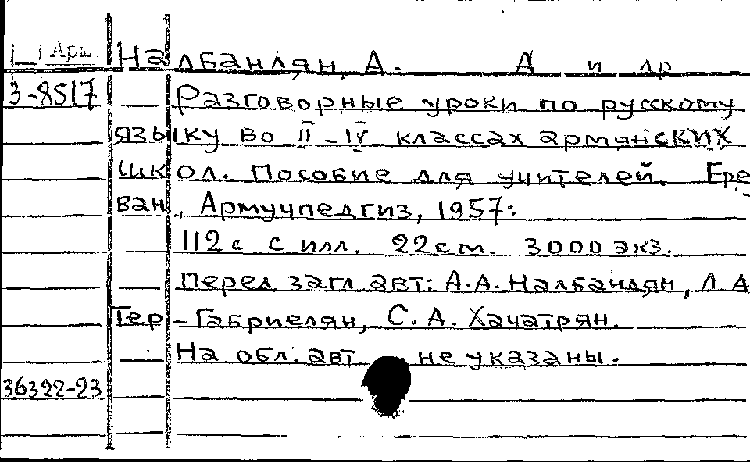 Арм Налбандян, А. А и др
3-8517 Разговорные уроки по русскому
языку во II-IV классах армянских
школ. Пособие для учителей. Ере
ван, Армучпедгиз, 1957:
112с с илл. 22см. 3000 экз.
Перед загл. авт: А.А. Налбандян, Л А
Тер-Габриелян, С. А. Хачатрян.
На обл. авт не указаны.
36322-23